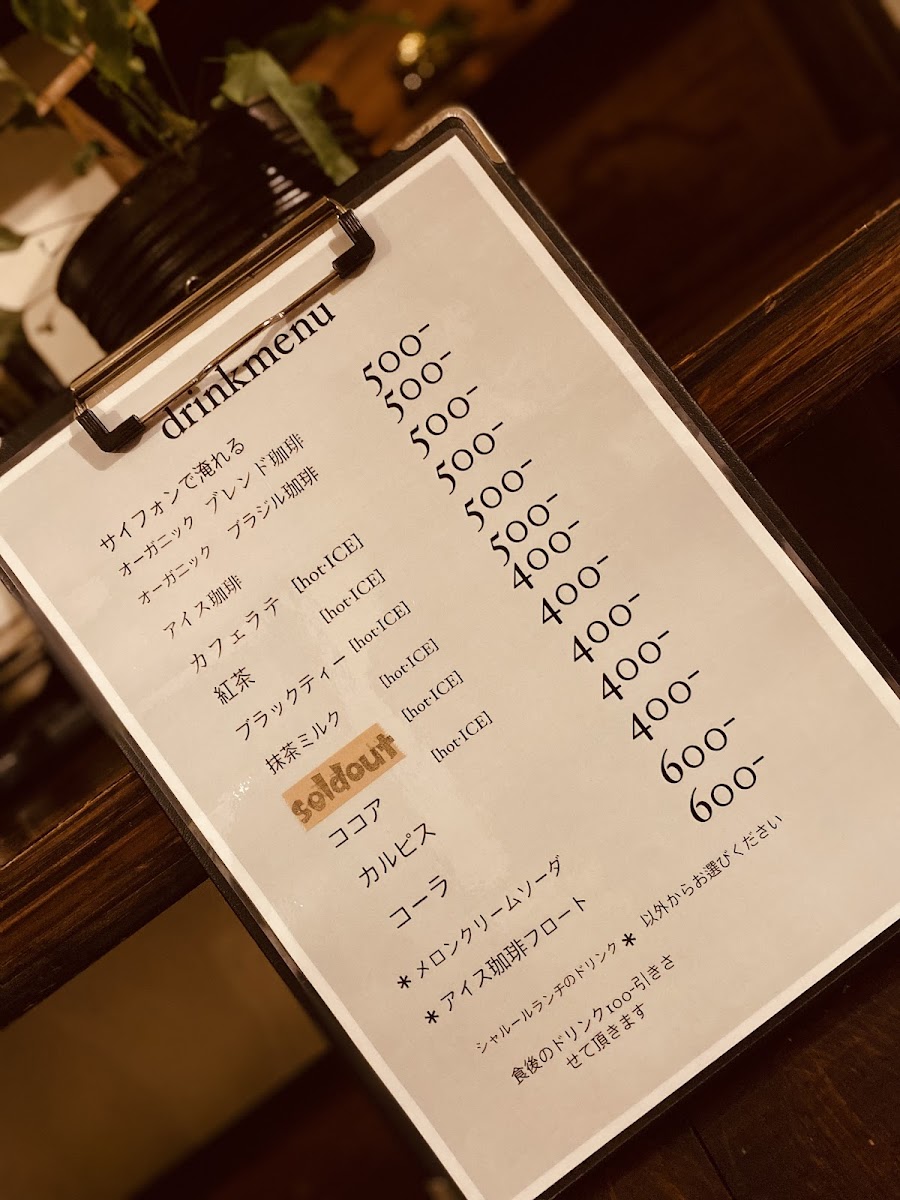 drinkmenu
サイフォンで淹れる
オーガニック ブレンド珈琲 500-
オーガニック ブラジル珈琲 500-
アイス珈琲 500-
カフェラテ [hot·ICE] 500-
紅茶 [hot·ICE] 500-
ブラックティー [hot·ICE] 500-
抹茶ミルク [hot·ICE] 400-
soldout [hot·ICE] 400-
ココア [hot·ICE] 400-
カルピス 400-
コーラ 400-
*メロンクリームソーダ 600-
*アイス珈琲フロート 600-
シャルールランチのドリンク * 以外からお選びください
食後のドリンク100-引きさ
せて頂きます